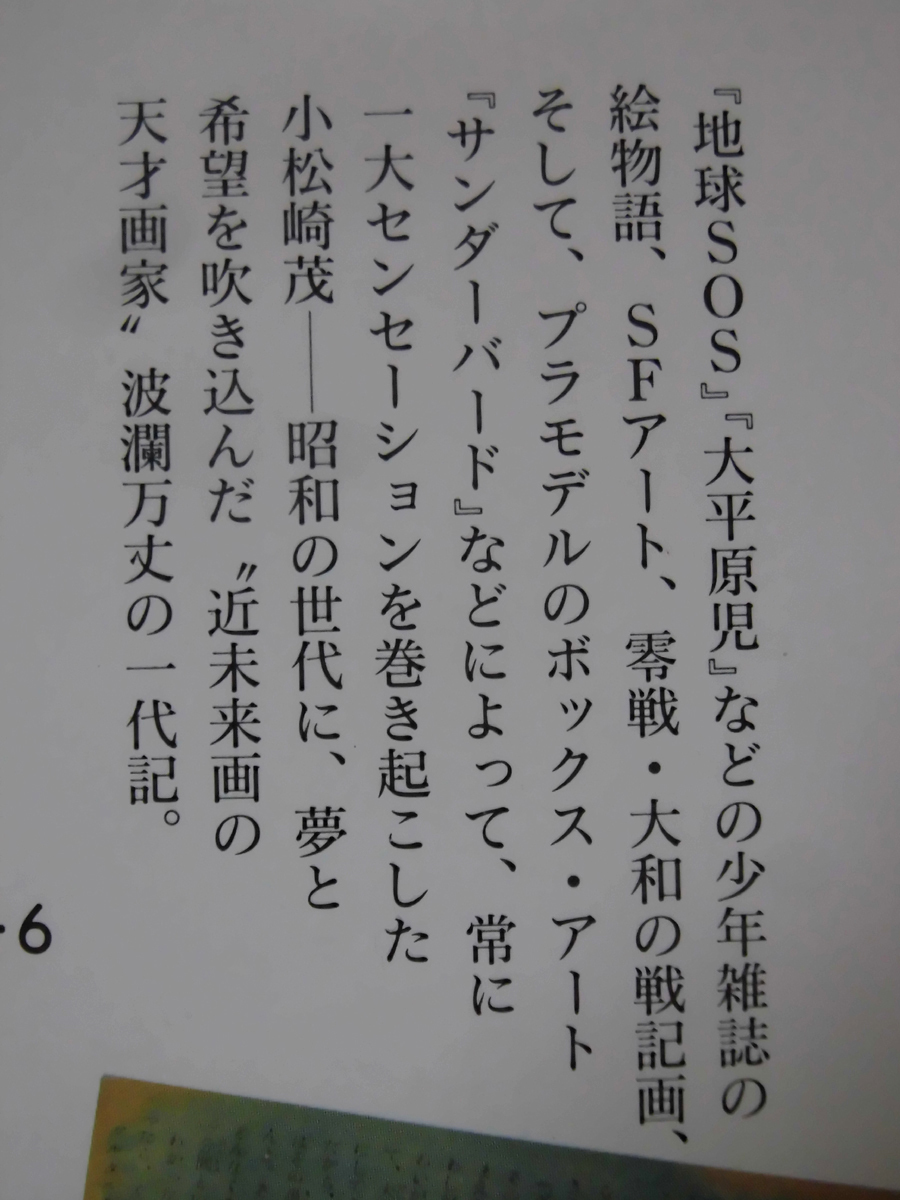 『地球SOS』『大平原児』などの少年雑誌の
絵物語、SFアート、零戦・大和の戦記画、
そして、プラモデルのボックス・アート
『サンダーバード』などによって、常に
一大センセーションを巻き起こした
小松崎茂──昭和の世代に、夢と
希望を吹き込んだ〝近未来画の
天才画家〟波瀾万丈の一代記。
6